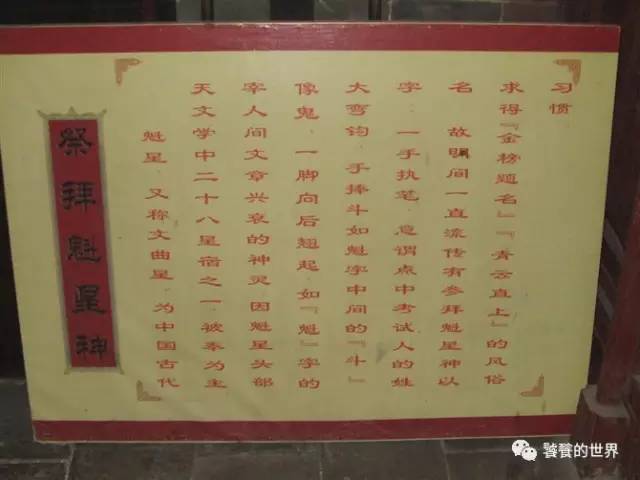 祭拜魁星神
魁星,又称文曲星,为中国古代
天文学中二十八星宿之一,被奉为主
宰人间文章兴衰的神灵,因魁星头部
像鬼,一脚向后翘起,如『魁』字的
大弯钩,手捧斗如魁字中间的『斗』
字,一手执笔,意谓点中考试人的姓
名 故明间一直流传有参拜魁星神以
求得『金榜题名』『青云直上』的风俗
习惯
饕餮的世界